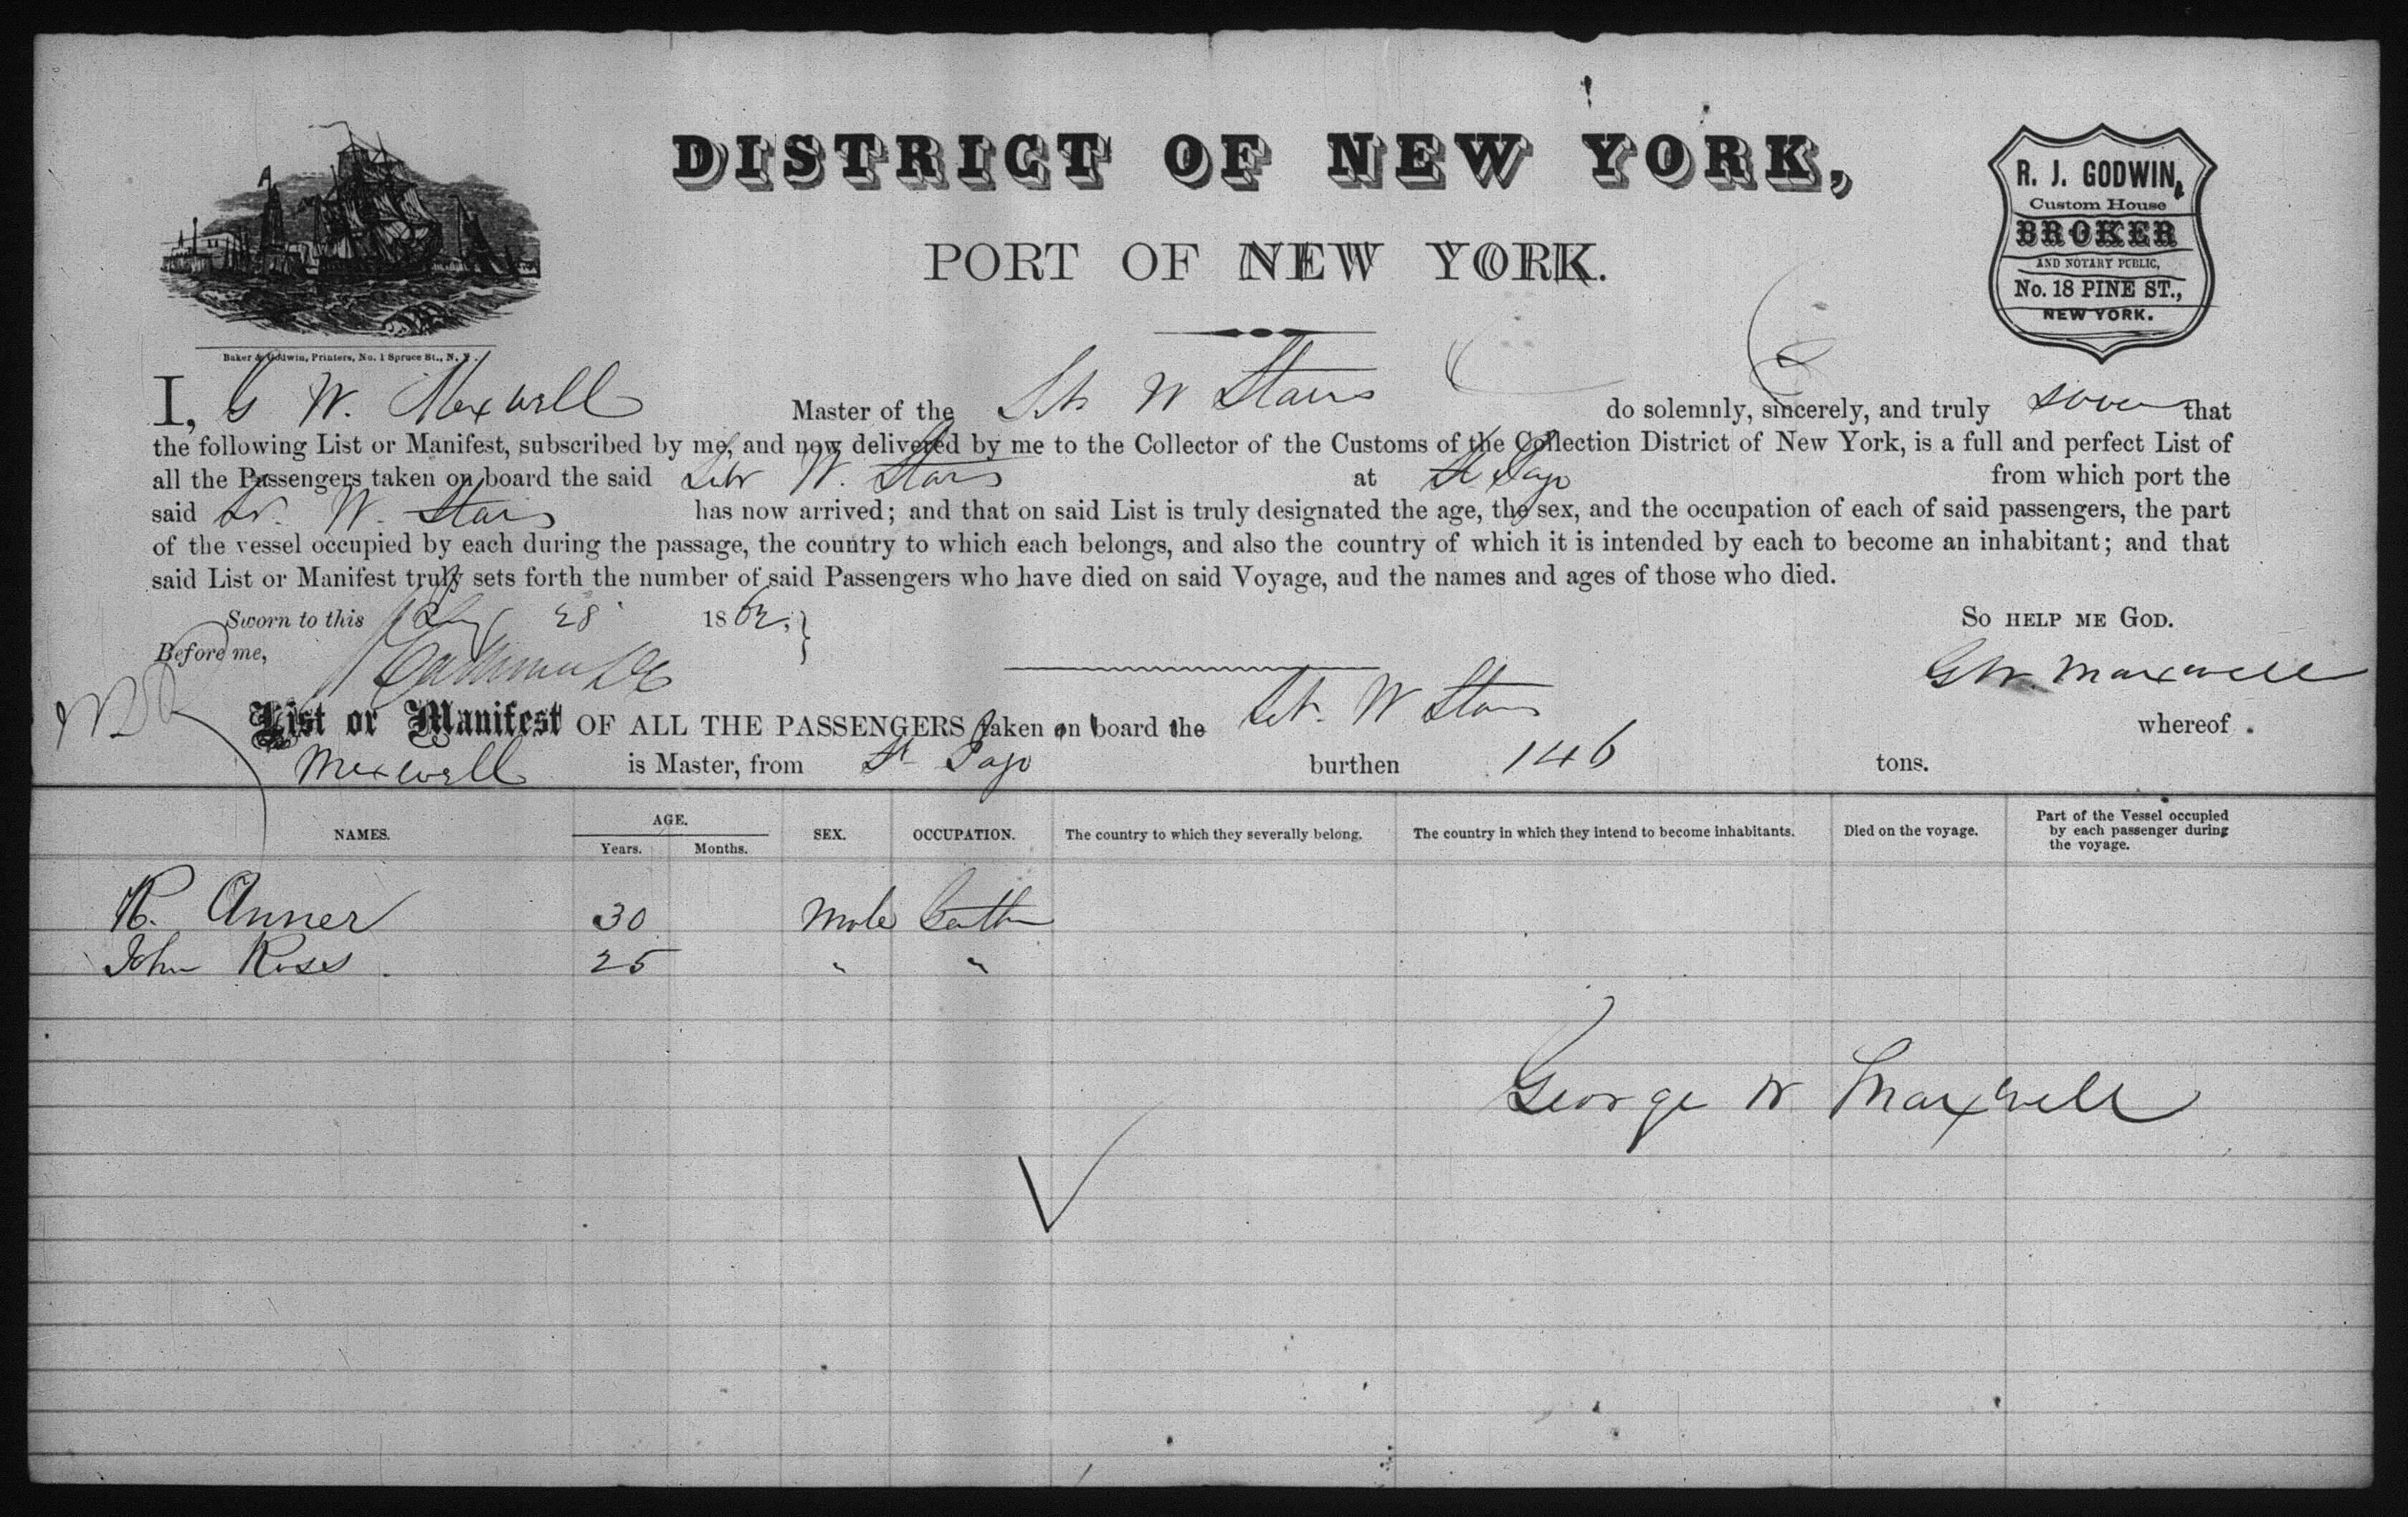 DISTRICT OF NEW YORK,
PORT OF NEW YORK.
R. J. GODWIN,
Custom House
BROKER
AND NOTARY PUBLIC,
No. 18 PINE ST.,
NEW YORK.
Baker & Godwin, Printers, No. 1 Spruce St., N. Y.
I, G W. Maxwell Master of the Sch W Stairs do solemnly, sincerely, and truly swear that
the following List or Manifest, subscribed by me, and now delivered by me to the Collector of the Customs of the Collection District of New York, is a full and perfect List of
all the Passengers taken on board the said Schr W. Stairs at St Jago from which port the
said Sr. W. Stairs has now arrived; and that on said List is truly designated the age, the sex, and the occupation of each of said passengers, the part
of the vessel occupied by each during the passage, the country to which each belongs, and also the country of which it is intended by each to become an inhabitant; and that
said List or Manifest truly sets forth the number of said Passengers who have died on said Voyage, and the names and ages of those who died.
Sworn to this 28 1862, SO HELP ME GOD.
Before me, GW. Maxwell
List or Manifest OF ALL THE PASSENGERS taken on board the Sch. W Stairs whereof
Maxwell is Master, from St Jago burthen 146 tons.
NAMES. AGE. Years. Months. SEX. OCCUPATION. The country to which they severally belong. The country in which they intend to become inhabitants. Died on the voyage. Part of the Vessel occupied by each passenger during the voyage.
R. Anner 30 Male
John Ross. 25 " "
George W Maxwell